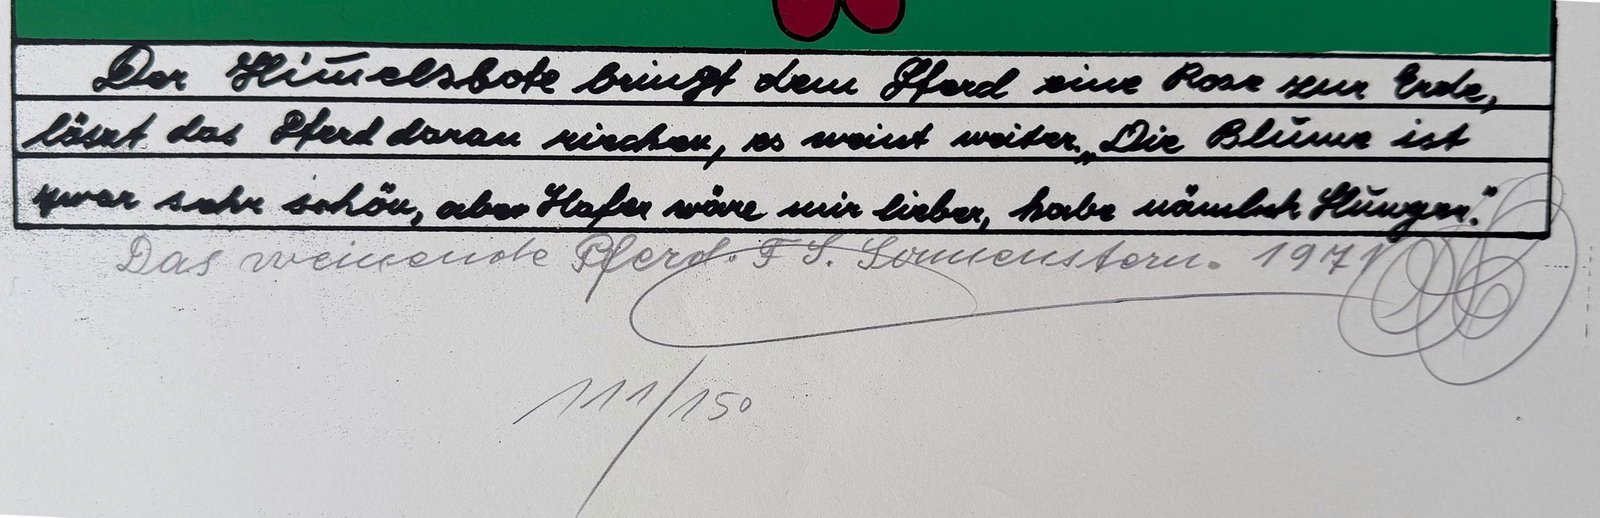 Der Him̄elsbote bringt dem Pferd eine Rose zur Erde,
lässt das Pferd daran riechen, es weint weiter. „Die Blume ist
zwar sehr schön, aber Hafer wäre mir lieber, habe nämlich Hunger."
Das weinende Pferd. F. S. Sonnenstern. 1971
111/150